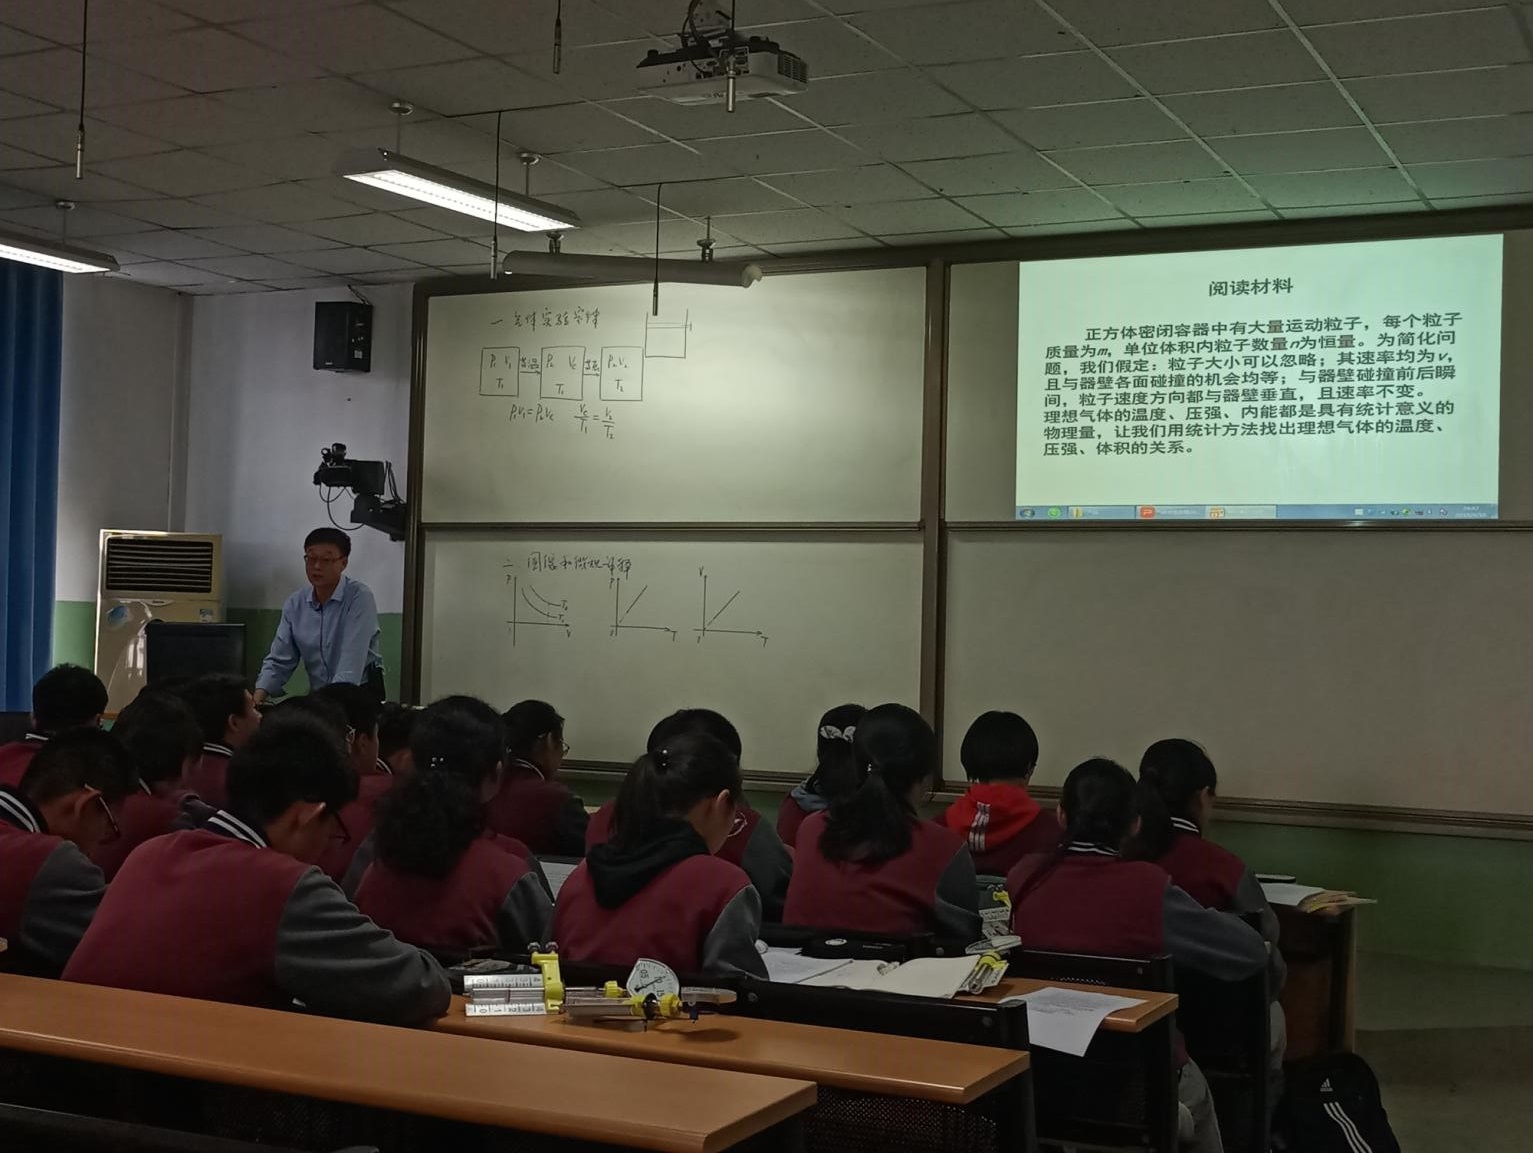 一 气体实验定律
P₁ V₁ 等温 P₂ Vc 等压 P₂ V₂
T₁ T₁ T₂
P₁V₁=P₂Vc Vc/T₁=V₂/T₂
二 图像和微观解释
P T₂ T₁ V
P T
V T
阅读材料
正方体密闭容器中有大量运动粒子，每个粒子
质量为m，单位体积内粒子数量n为恒量。为简化问
题，我们假定：粒子大小可以忽略；其速率均为v，
且与器壁各面碰撞的机会均等；与器壁碰撞前后瞬
间，粒子速度方向都与器壁垂直，且速率不变。
理想气体的温度、压强、内能都是具有统计意义的
物理量，让我们用统计方法找出理想气体的温度、
压强、体积的关系。